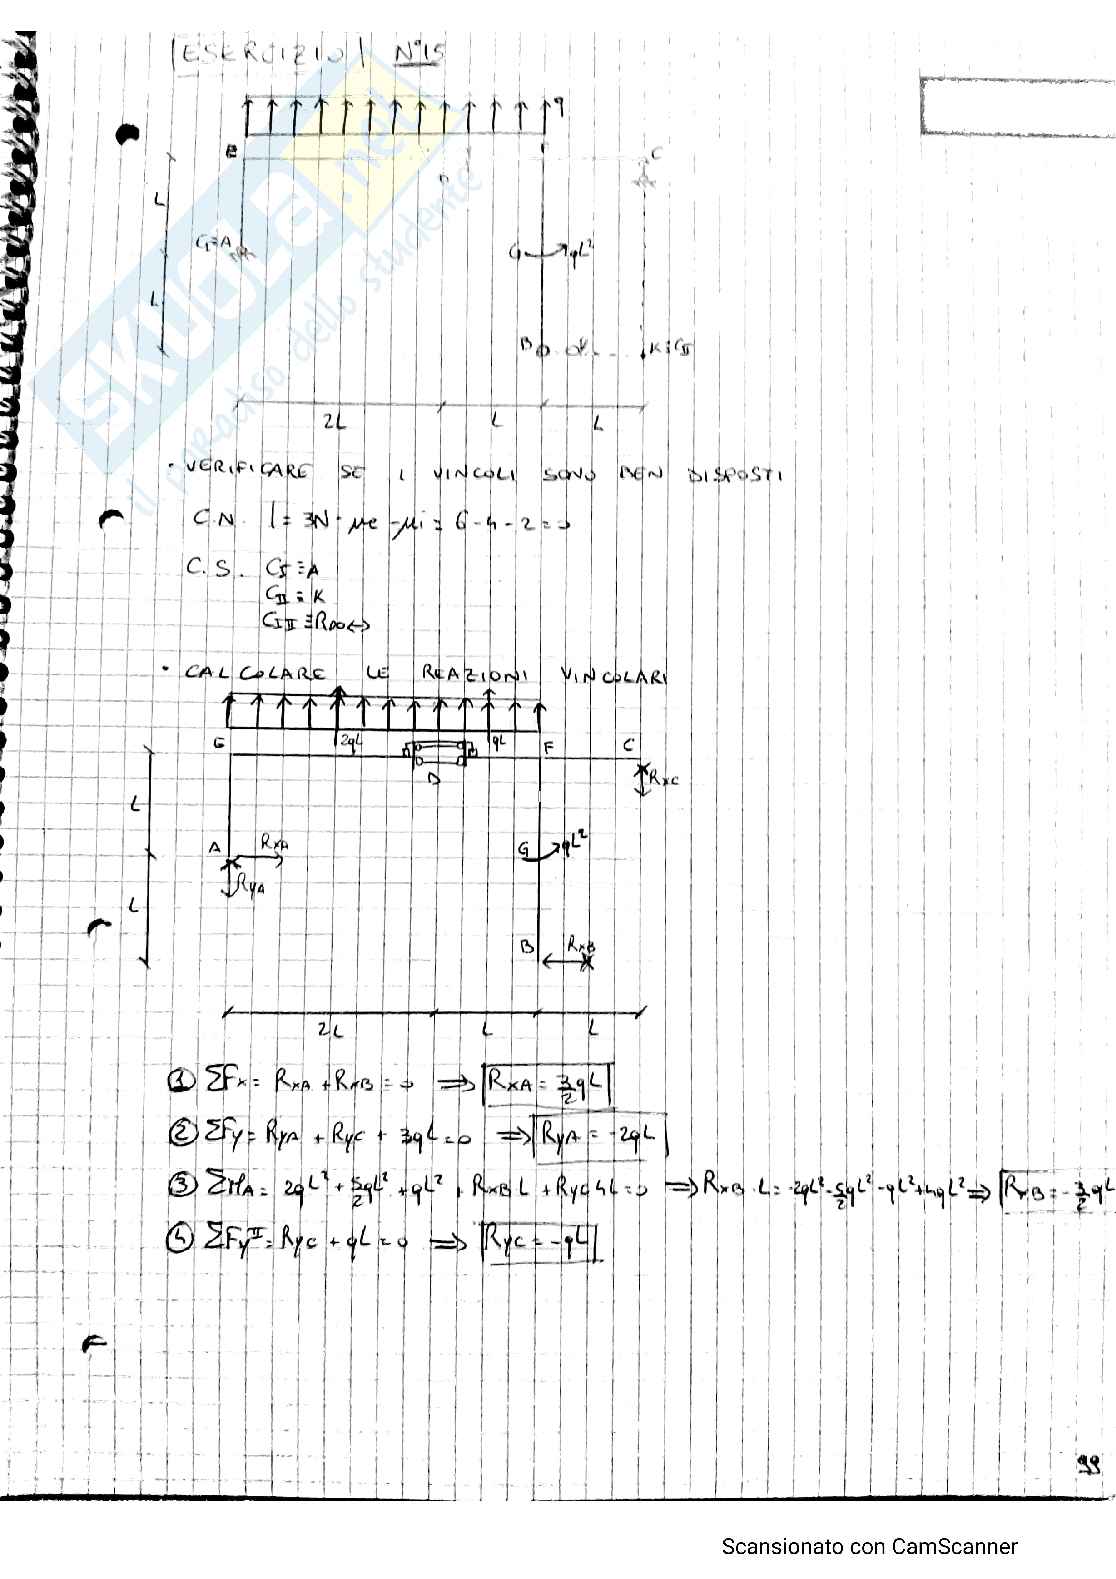 ESERCIZIO N°15
q
E
C
L
G≡A
G
qL²
L
B
K≡C
2L
L
L
· VERIFICARE SE I VINCOLI SONO BEN DISPOSTI
C.N. l = 3N - μe - μi = 6-4-2 = 0
C.S. CI ≡ A
CII ≡ K
· CALCOLARE LE REAZIONI VINCOLARI
2qL
qL
F
C
D
RxC
L
A
RxA
G
qL²
RyA
L
B
RxB
2L
L
L
① ΣFx = RxA + RxB = 0 ⟹ RxA = 3/2 qL
② ΣFy = RyA + RyC + 3qL = 0 ⟹ RyA = -2qL
③ ΣMA = 2qL² + 5/2 qL² + qL² + RxB L + RyC 4L = 0 ⟹ RxB · L = -2qL² - 5/2 qL² - qL² + 4qL² ⟹ RxB = -3/2 qL
④ ΣFyII = RyC + qL = 0 ⟹ RyC = -qL
99
SKUOLA.net
il paradiso dello studente
Scansionato con CamScanner